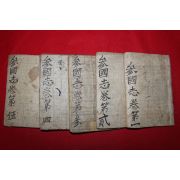 參國志卷第一
參國志卷第貳
參國志卷第參
參國志卷第四
參國志卷第伍